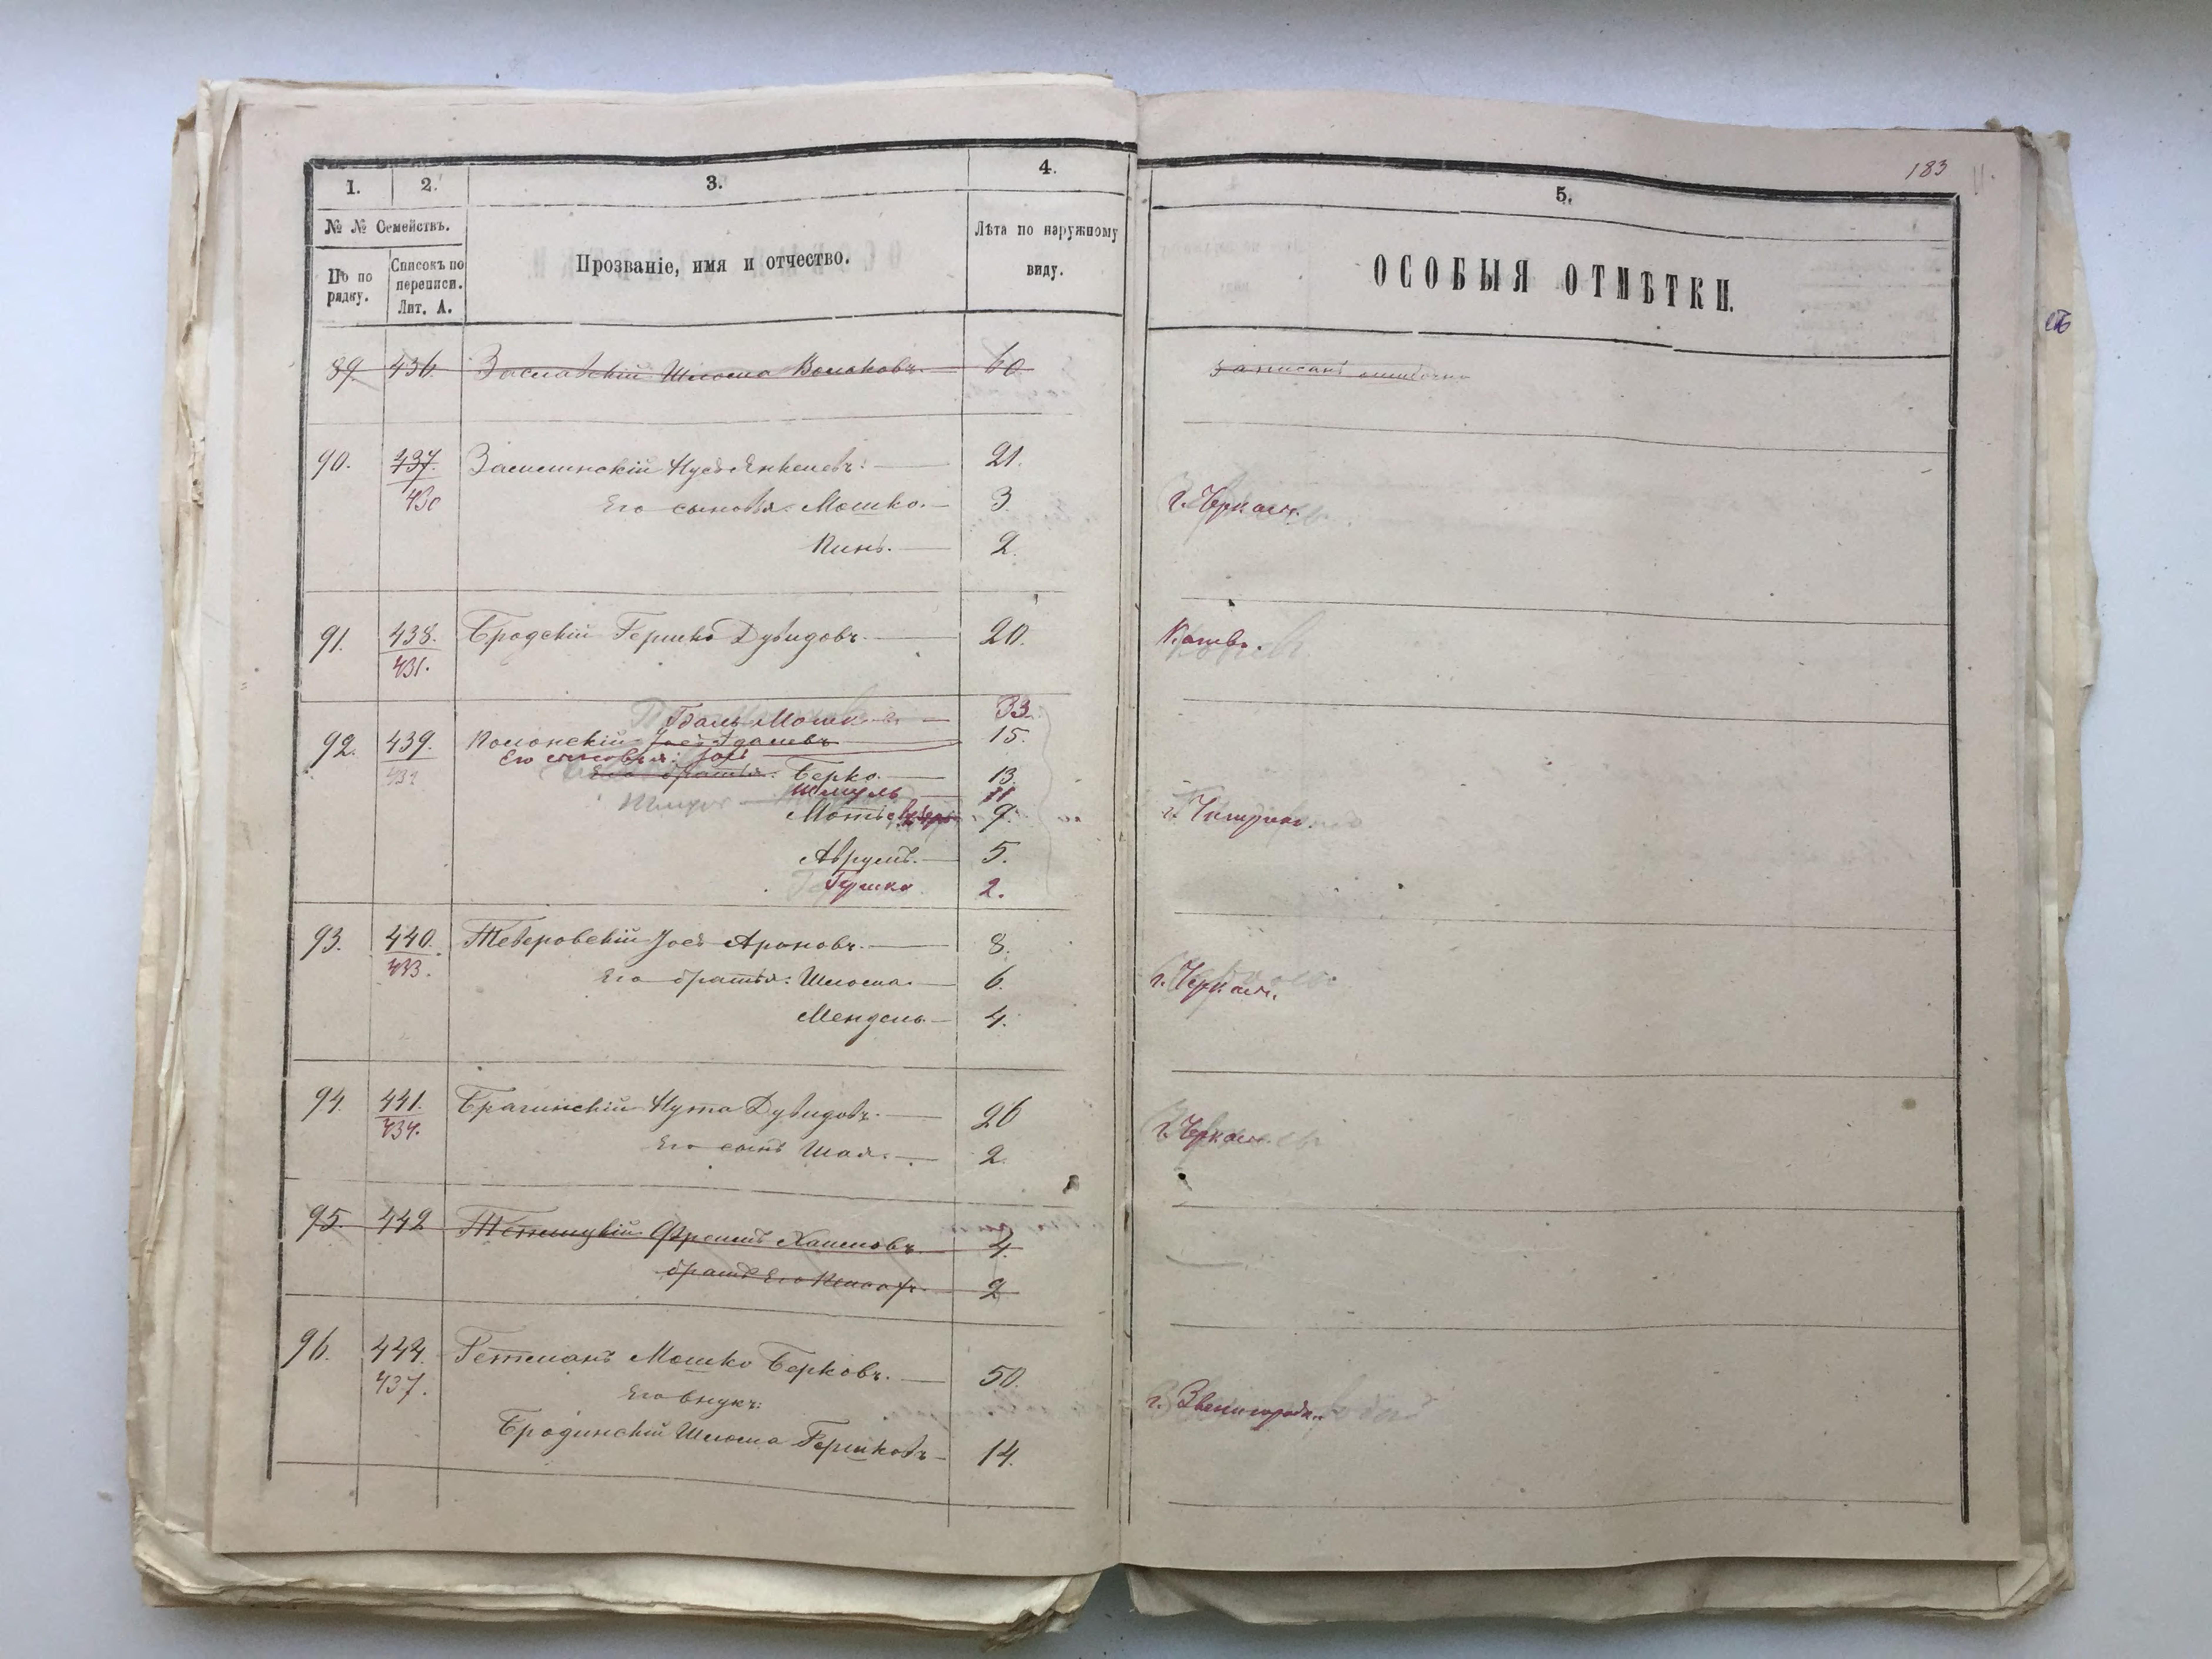 183
1. 2. 3. 4. 5.
№ № Семействъ.
По по рядку.
Списокъ по переписи. Лит. А.
Прозваніе, имя и отчество.
Лѣта по наружному виду.
ОСОБЫЯ ОТМѢТКИ.
89. 436. Заславскій Шлома Волковъ 60 Записанъ ошибочно
90. 437. Нусъ Янкелевъ. 21.
430 Его сыновья: Мошко. 3. г. Черкасъ.
Пинь. 2.
91. 438. Бродскій Гершко Дувидовъ. 20. Каневъ.
431.
Мошк 33.
92. 439. Полонскій Іосъ 15.
Его сыновья: Іосъ
432 Его братья: Берко. 13.
Шмуль 11
Мотъ 9. г. Чигринъ.
Аврумъ. 5.
Гершко 2.
93. 440. Теверовскій Іосъ Ароновъ. 8.
433. Его братья: Шлома. 6. г. Черкасъ.
Мендель. 4.
94. 441. Брагинскій Нута Дувидовъ. 26
434. Его сынъ Шая. 2. г. Черкасъ.
95. 442 Фроимъ Хаимовъ 4.
братъ Его 2
96. 444. Гетманъ Мошко Берковъ. 50.
437. Его внукъ: г. Звенигородк.
Бродинскій Шлома Гершковъ 14.